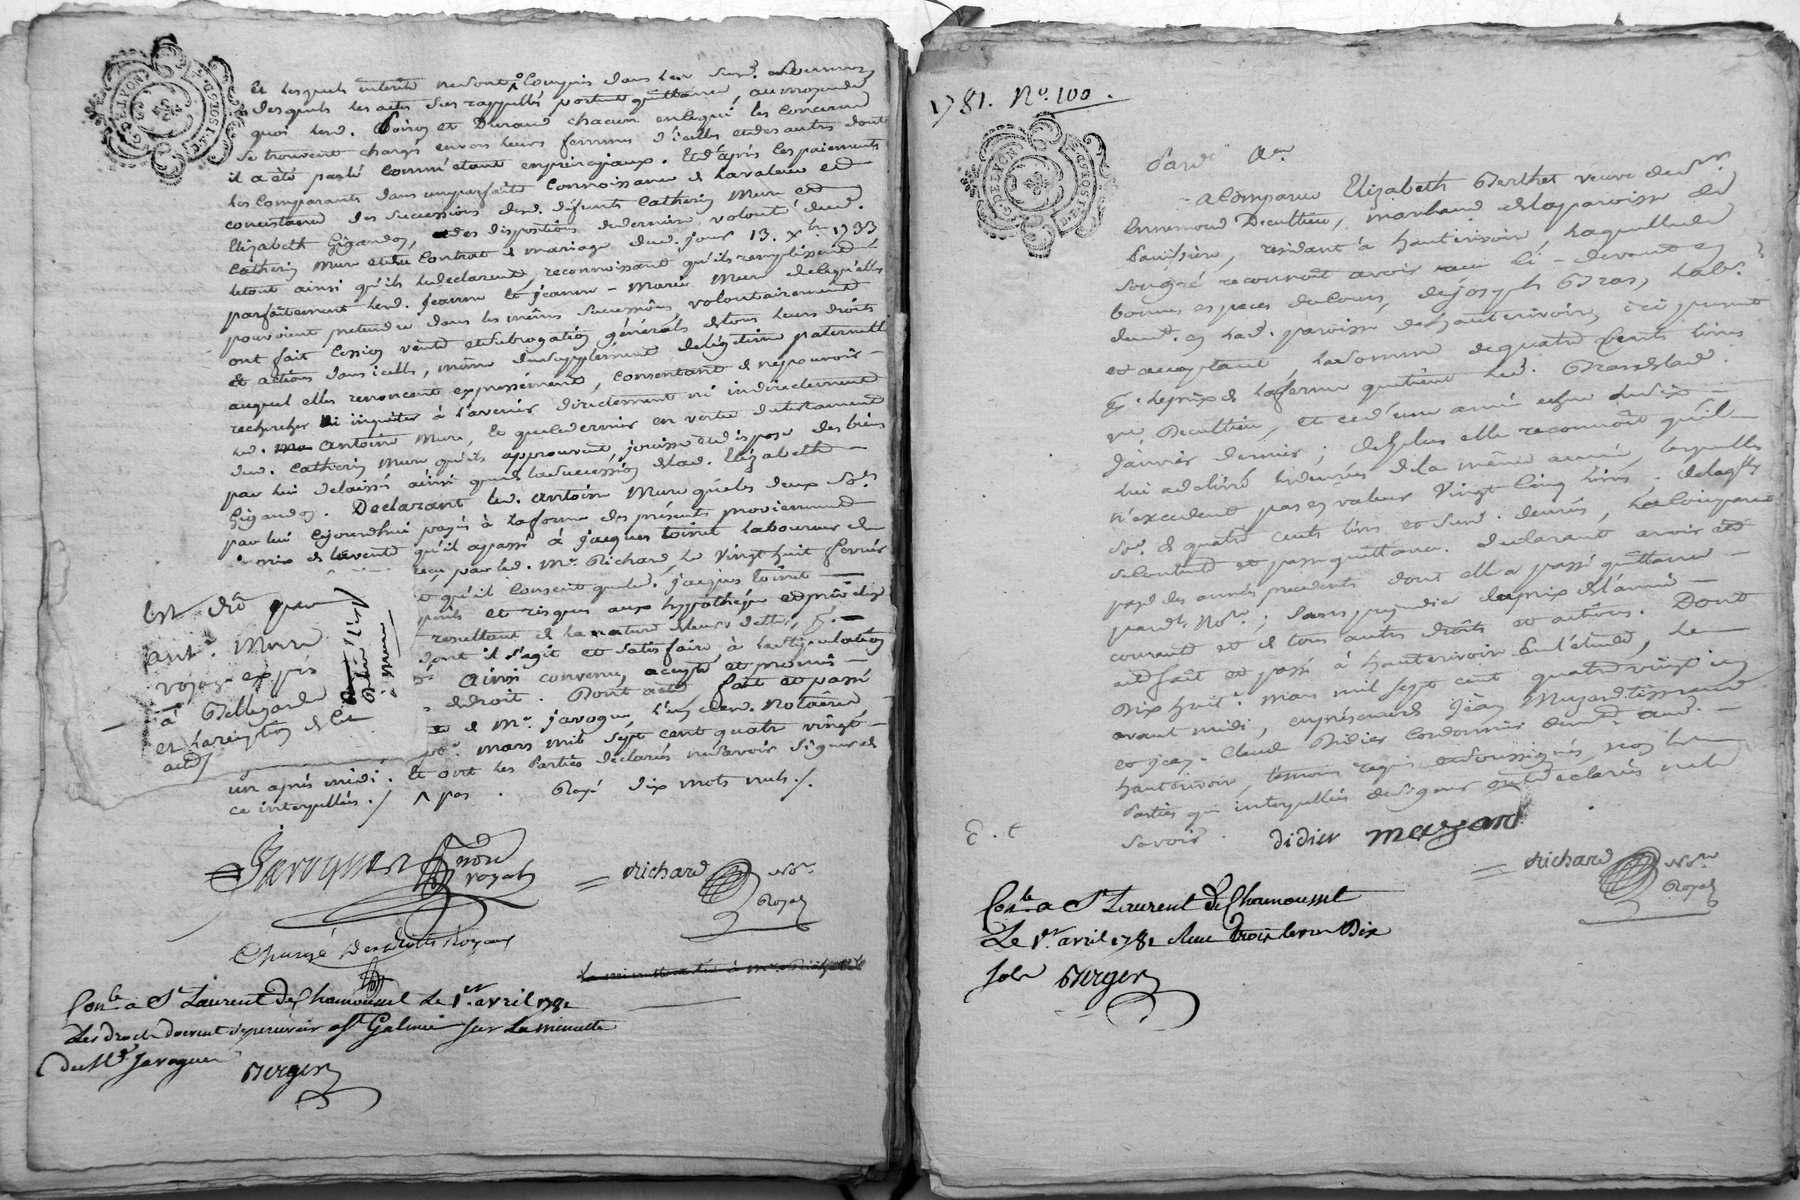 G. DE LYON
Et lesquels interêts ne sont compris dans les susd. sommes
desquels les actes sus rappellés portent quittance, au moyen de
quoi lesd. Poiroy et Durand chacun en ce qui les concerne
se trouvent chargés envers leurs femmes d'icelles et des autres dont
il a été parlé comme étant en principaux. Et d'après les payements
les comparants dans une parfaite connoissance de la valeur et
consistance des successions desd. défunts Catherin Mure et
Elizabeth Gigandon, et des dispositions de derniere volonté dud.
Catherin Mure et du contrat de mariage dud. jour 13. xbre 1733
le tout ainsi qu'ils le declarent, reconnoissant qu'ils remplissent
parfaitement lesd. Jeanne et Jeanne-Marie Mure de ce qu'elles
pouvoient pretendre dans les mêmes successions, volontairement
ont fait cession vente et subrogation générale de tous leurs droits
et actions dans icelles, même du supplément de légitime paternelle
auquel elles renoncent expressément, consentant de ne pouvoir
rechercher ni inquiéter à l'avenir directement ni indirectement
led. Antoine Mure, et que ce dernier en vertu du testament
dud. Catherin Mure qu'ils approuvent, jouisse et dispose des biens
par lui delaissés ainsi que de la succession de lad. Elizabeth
Gigandon. Declarant led. Antoine Mure que les deux So.
par lui cejourd'hui payés à la forme des présentes proviennent
prix de la vente qu'il a passé à Jacques Toinet laboureur de
reçu par led. Me. Richard, le vingt huit fevrier
qu'il consent que led. Jacques Toinet
perils et risques aux hypothéques et privileges
resultant de la nature de leurs dettes,
dont il s'agit et satisfaire à la stipulation
Ainsi convenu, accepté et promis
de droit. Dont acte fait et passé
de Me. Javogue, l'un desd. Notaires,
mars mil sept cent quatre vingt
un après midi. Et ont les Parties déclarés ne savoir signer de
ce interpellées. / ^ pas. Rayé dix mots nuls. /
ant. Mure
voyage exprès
à Bellegarde
Javoguer nore royal
Richard Nore Royal
Chargé des droits Royaux
Conlé a St Laurent de Chamousset le 1er avril 1781
Les droits doivent se percevoir a St Galmier sur la minutte
du Me Javoguer
Berger
1781. No. 100.
G. DE LYON
Pardt. Nore.
a comparu Elizabeth Berthet veuve de sr.
Ennemond Decultieu, marchand de la paroisse de
Sauissiere, residant à hauterivoir, laquelle de
son gré reconnoît avoir reçu ci-devant en
bonnes especes de cours, de Joseph Bras, labr.
demt. en lad. paroisse de hauterivoir, ici present
et acceptant, la somme de quatre cents livres
pr. le prix de la ferme que tient led. Bras de lad.
ve. Decultieu, et ce d'une année echue du dix
Janvier dernier; de plus elle reconnoît qu'il
lui a delivré les denrées de la même année, lesquelles
n'excedent pas en valeur vingt cinq livres. De laqlle
So. de quatre cents livres et susd. denrés, la comparante
se contente et passe quittance. declarant avoir été
payé des années precedentes dont elle a passé quittance
pardt. Nore.; sans prejudice du prix de l'année
courante et de tous autres droits et actions. Dont
acte fait et passé à hauterivoir en l'étude, le
dix huit. mars mil sept cent quatre vingt un
avant midi, en présence de Jean Mazard tisserand
et Jean-Claude Didier cordonnier demt. aud.
hauterivoir, temoins requis et soussignés, non les
Parties qui interpellées de signer ont declarés ne le
savoir.
didier mazard
Richard Nore Royal
Conlé a St Laurent de Chamousset
Le 1er. avril 1781 Reçu Trois livres Dix
sols Berger